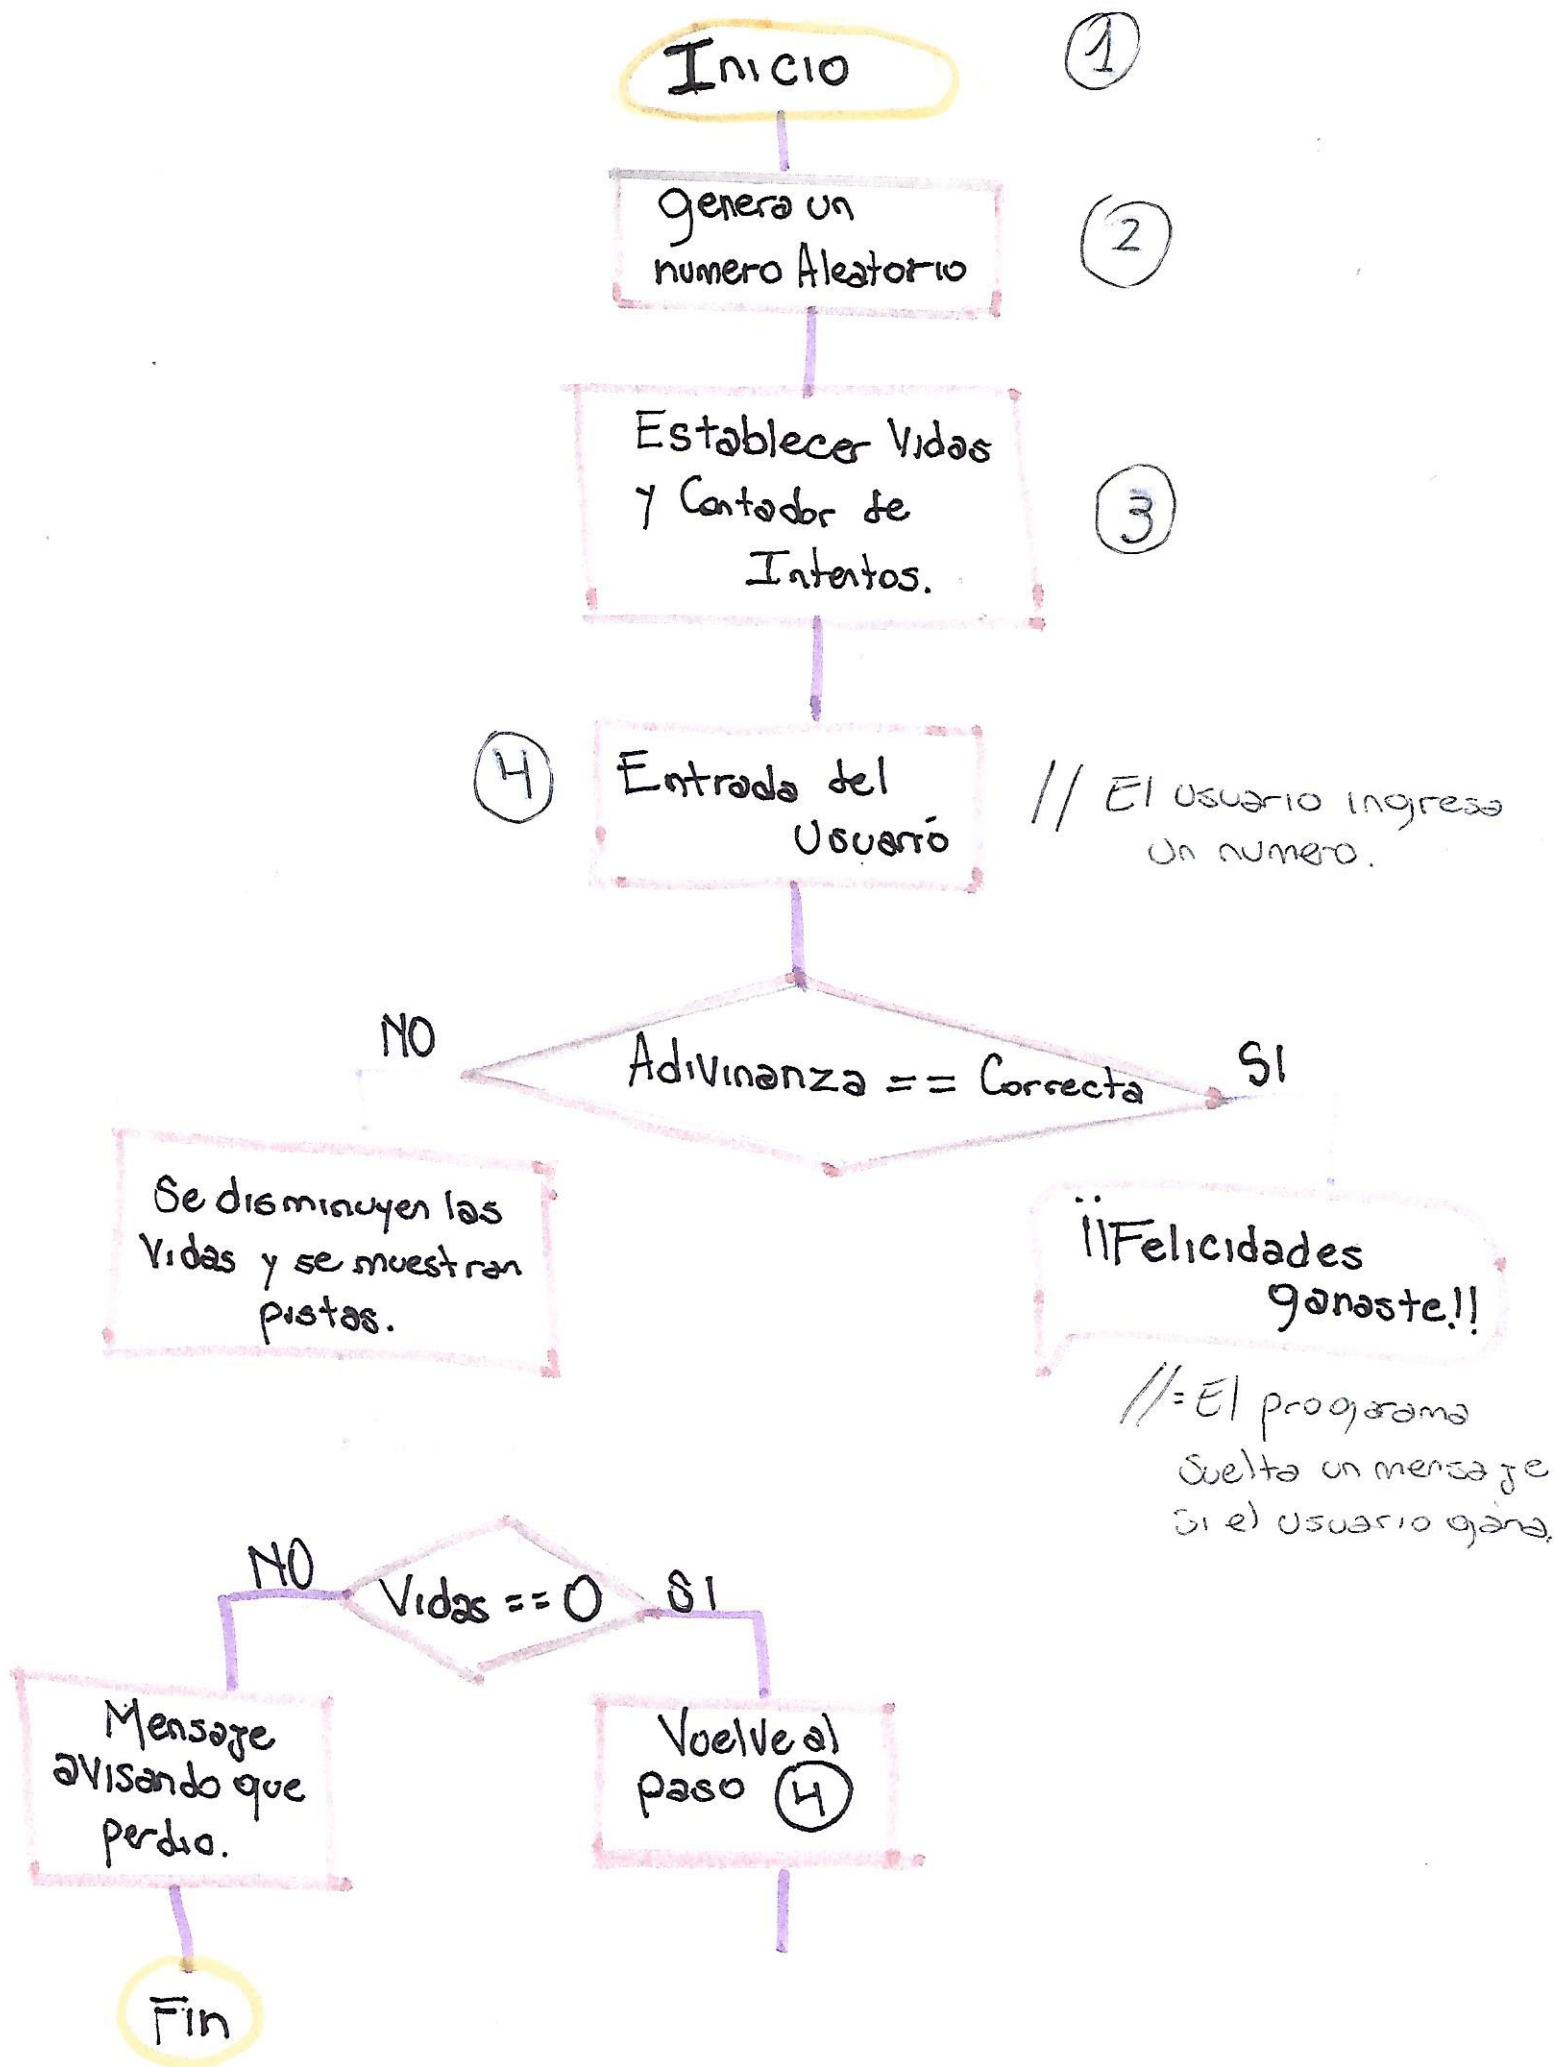 Inicio
1
genera un
numero Aleatorio
2
Establecer Vidas
y Contador de
Intentos.
3
4
Entrada del
Usuarió
// El usuario ingresa
un numero.
NO
Adivinanza == Correcta
SI
Se disminuyen las
Vidas y se muestran
pistas.
¡¡Felicidades
ganaste.!!
//= El programa
suelta un mensaje
si el usuario gana.
NO
Vidas == 0
SI
Mensaje
avisando que
perdio.
Vuelve al
paso 4
Fin